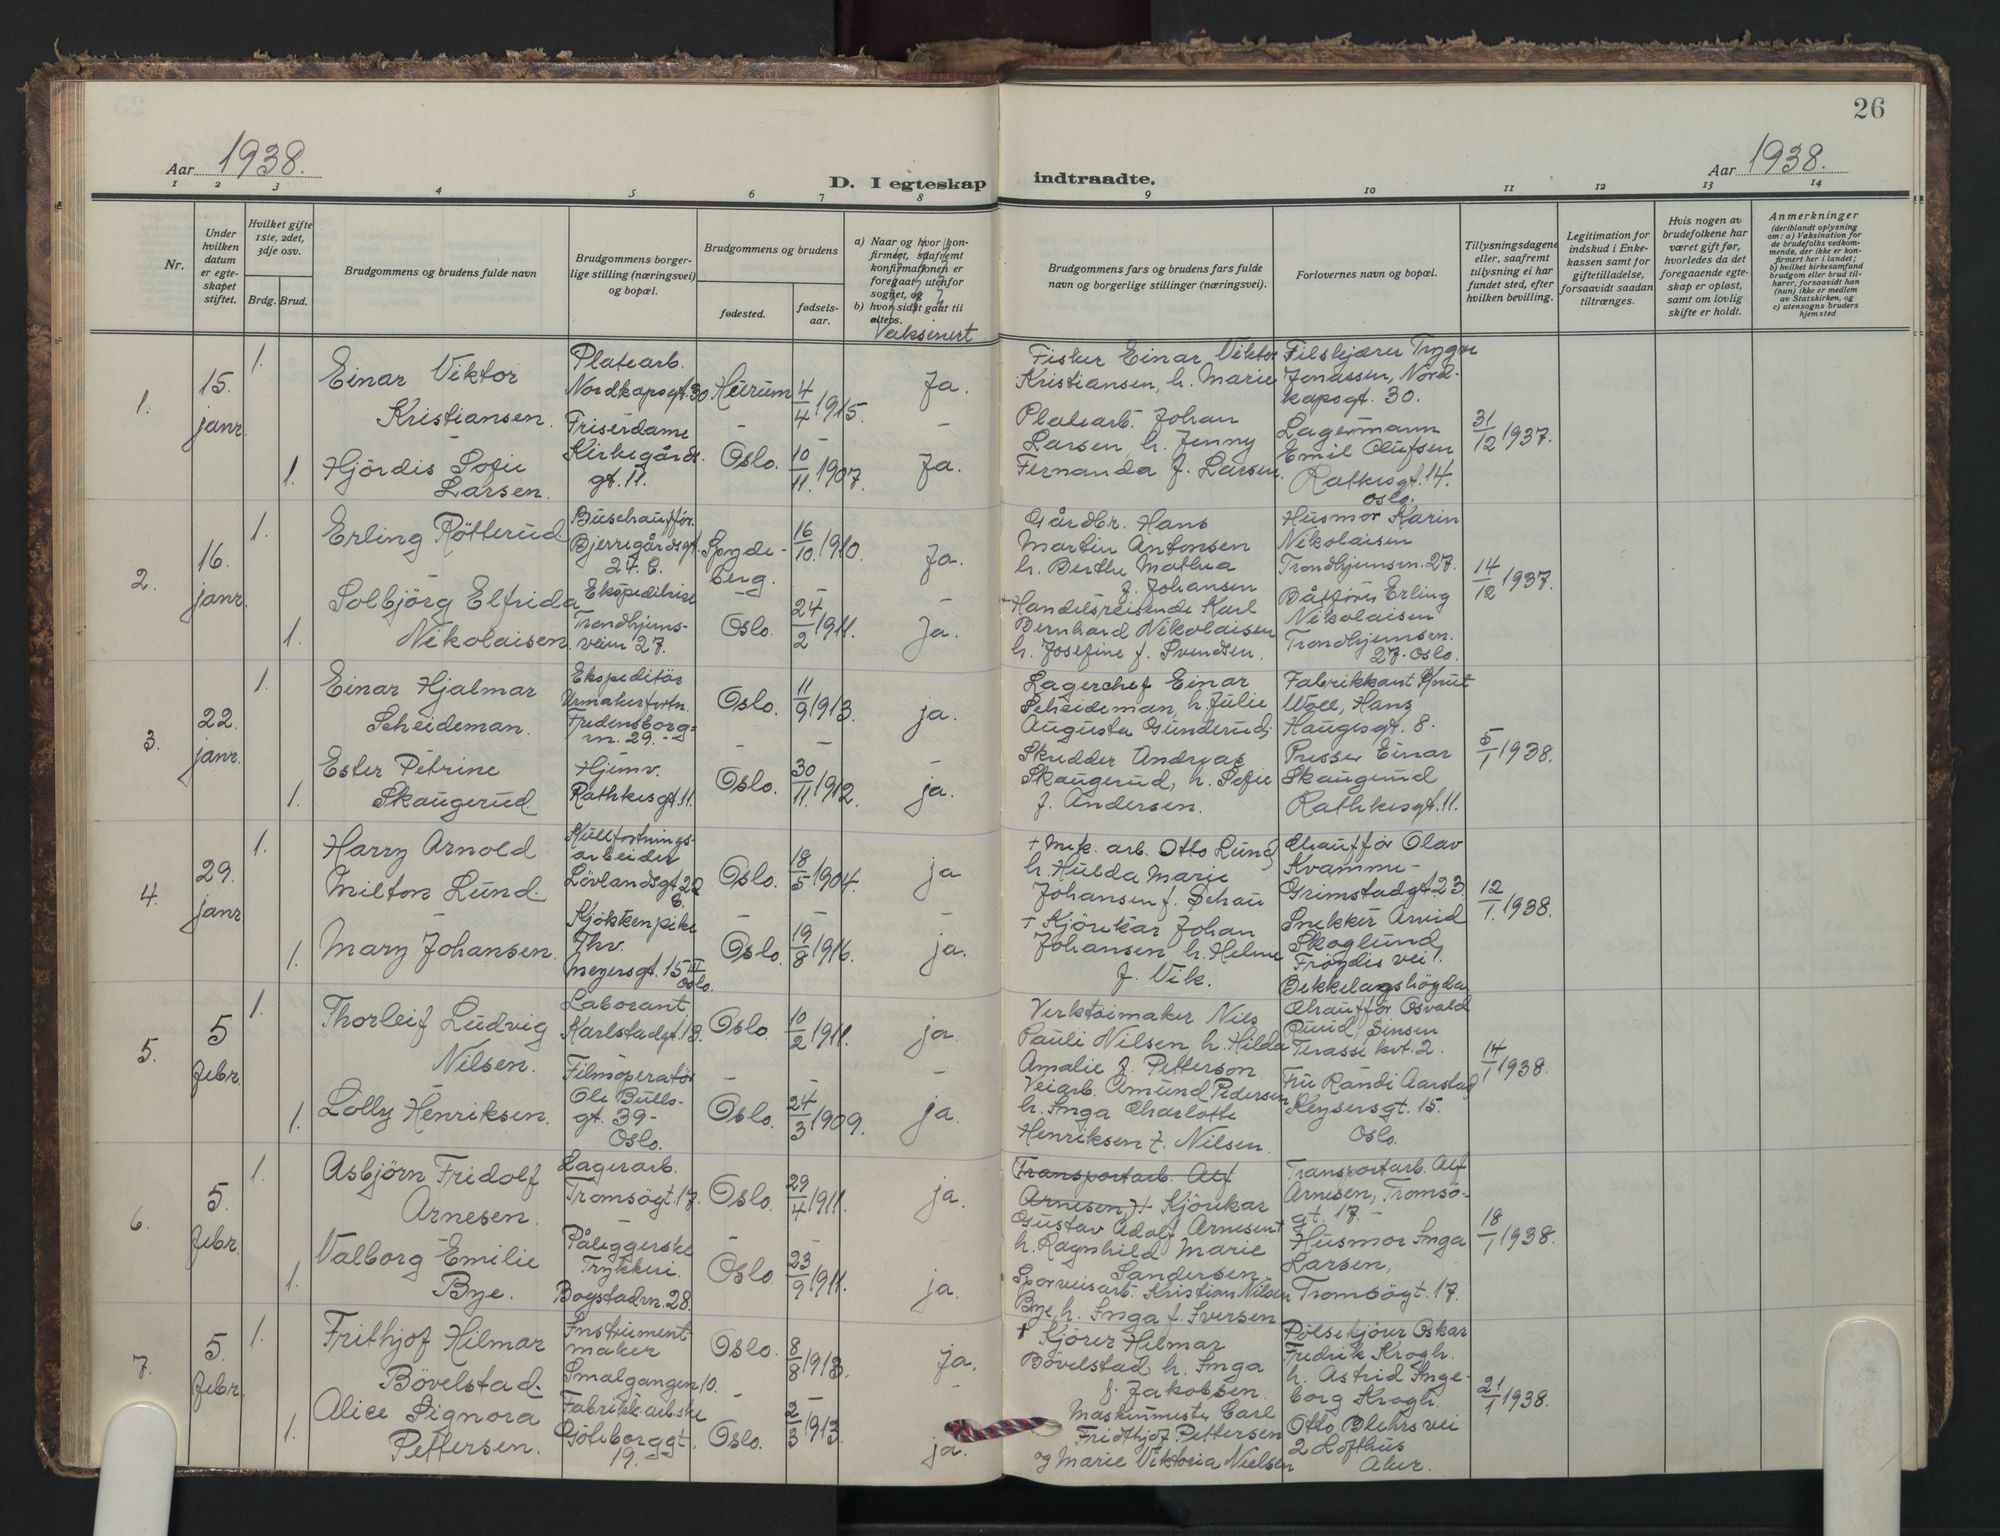 26
Aar 1938.
Aar 1938.
D. I egteskap indtraadte.
1 2 3 4 5 6 7 8 9 10 11 12 13 14
Nr.
Under hvilken datum er egteskapet stiftet.
Hvilket gifte 1ste, 2det, 3dje osv.
Brdg. Brud.
Brudgommens og brudens fulde navn
Brudgommens borgerlige stilling (næringsvei) og bopæl.
Brudgommens og brudens
fødested.
fødselsaar.
a) Naar og hvor konfirmert, saafremt konfirmationen er foregaat utenfor sognet, og
b) hvor sidst gaat til alters.
Vaksenert
Brudgommens fars og brudens fars fulde navn og borgerlige stillinger (næringsvei).
Forlovernes navn og bopæl.
Tillysningsdagene eller, saafremt tilysning ei har fundet sted, efter hvilken bevilling.
Legitimation for indskud i Enkekassen samt for giftetilladelse, forsaavidt saadan tiltrænges.
Hvis nogen av brudefolkene har været gift før, hvorledes da det foregaaende egteskap er opløst, samt om lovlig skifte er holdt.
Anmerkninger
(deriblandt oplysning om: a) Vaksination for de brudefolks vedkommende, der ikke er konfirmert her i landet; b) hvilket kirkesamfund brudgom eller brud tilhører, forsaavidt han (hun) ikke er medlem av Statskirken, og c) utensogns bruders hjemsted
1.
15. janr.
1.
Einar Viktor
Kristiansen.
Platearb.
Nordkapsgt. 30.
Hurum
4/4 1915.
Ja.
1.
Hjördis Sofie
Larsen.
Friserdame
Kirkegårds-
gt. 11.
Oslo.
10/11 1907.
Ja.
Fisker Einar Viktor
Kristiansen, h. Marie
Platearb. Johan
Larsen, h. Jenny
Fernanda f. Larsen.
Filskjærer Trygve
Jonassen, Nord-
kapsgt. 30.
Lagermann
Emil Olufsen
Rathkesgt. 14.
Oslo.
31/12 1937.
2.
16. janr.
1.
Erling Rötterud
Buschauffør.
Bjerregårdsgt.
27. E.
Spyde-
berg.
16/10 1910.
Ja.
1.
Solbjörg Elfrida
Nikolaisen.
Ekspeditrise
Trondhjems-
veien 27.
Oslo.
24/2 1911.
Ja.
Gårdbr. Hans
Martin Antonsen
h. Berthe Mathea
f. Johansen
Handelsreisende Karl
Bernhard Nikolaisen
h. Josefine f. Svendsen.
Husmor Karin
Nikolaisen
Trondhjemsvn. 27.
Båtfører Erling
Nikolaisen
Trondhjemsvn.
27. Oslo.
14/12 1937.
3.
22. janr.
1.
Einar Hjalmar
Scheideman.
Ekspeditör
Urmakerfortn.
Fredensborg-
vn. 29.
Oslo.
11/9 1913.
ja.
1.
Ester Petrine
Skaugerud.
Hjemv.
Rathkesgt. 11.
Oslo.
30/11 1912.
ja.
Lagerchef Einar
Scheideman, h. Julie
Augusta Gunderud.
Skredder Andreas
Skaugerud, h. Sofie
f. Andersen.
Fabrikkant Knut
Woll, Hans
Haugesgt. 8.
Presser Einar
Skaugerud
Rathkesgt. 11.
5/1 1938.
4.
29. janr
1.
Harry Arnold
Milton Lund.
Kullfortnings-
arbeider
Lövlandsgt. 20
Oslo.
18/5 1904.
ja
1.
Mary Johansen.
Kjökkenpike
Thv.
Meyersgt. 15 III
Oslo.
Oslo.
19/8 1916.
ja.
+ Mek. arb. Otto Lund
h. Hulda Marie
Johansen f. Schau
+ Kjörekar Johan
Johansen h. Helene
f. Vik.
Chauffør Olav
Kvamme-
Grimstadgt 23
Snekker Arvid
Skoglund,
Fröydis vei 1.
Bekkelagshögda
12/1. 1938.
5.
5 febr.
1.
Thorleif Ludvig
Nilsen.
Laborant
Karlstadgt. 13.
Oslo.
10/2 1911.
ja.
1.
Lolly Henriksen.
Filmoperatör
Ole Bulls-
gt. 39-
Oslo.
Oslo.
24/3 1909.
ja.
Verktöimaker Nils
Pauli Nilsen h. Hilda
Amalie f. Petterson
Veiarb. Amund Pedersen
h. Inga Charlotte
Henriksen f. Nilsen.
Chauffør Osvald
Ruud, Sinsen
Terasse kvt. 2.
Fru Randi Aarstad
Keysersgt. 15.
Oslo.
14/1 1938.
6.
5. febr.
1.
Asbjörn Fridolf
Arnesen.
Lagerarb.
Tromsögt. 17.
Oslo.
29/4 1911.
ja
1.
Valborg Emilie
Bye.
Påleggerske
Trykkeri.
Bogstadvn. 28.
Oslo.
23/9 1911.
ja.
Transportarb. Alf
Arnesen, + Kjörekar
Gustav Adolf Arnesen
h. Ragnhild Marie
Sandersen
Sporveisarb. Kristian Nilsen
Bye, h. Inga f. Iversen
Transportarb. Alf
Arnesen, Tromsö-
gt. 17.
Husmor Inga
Larsen,
Tromsögt. 17.
18/1 1938.
7.
5. febr.
1.
Frithjof Hilmar
Bövelstad.
Instrument-
maker
Smalgangen 10.
Oslo.
8/8 1913.
Ja.
1.
Alice Signora
Pettersen.
Fabrikk.arb.ske
Göteborggt.
19.
Oslo.
2/3 1913.
ja.
+ Kjörer Hilmar
Bövelstad h. Inga
f. Jakobsen.
Maskinmester Carl
Fridthjof Pettersen
og Marie Viktoria Nielsen
Pölsekjörer Oskar
Fredrik Krogh.
h. Astrid Inge-
borg Krogh.
Otto Blehrs vei
2 Hofthus
Aker.
21/1 1938.